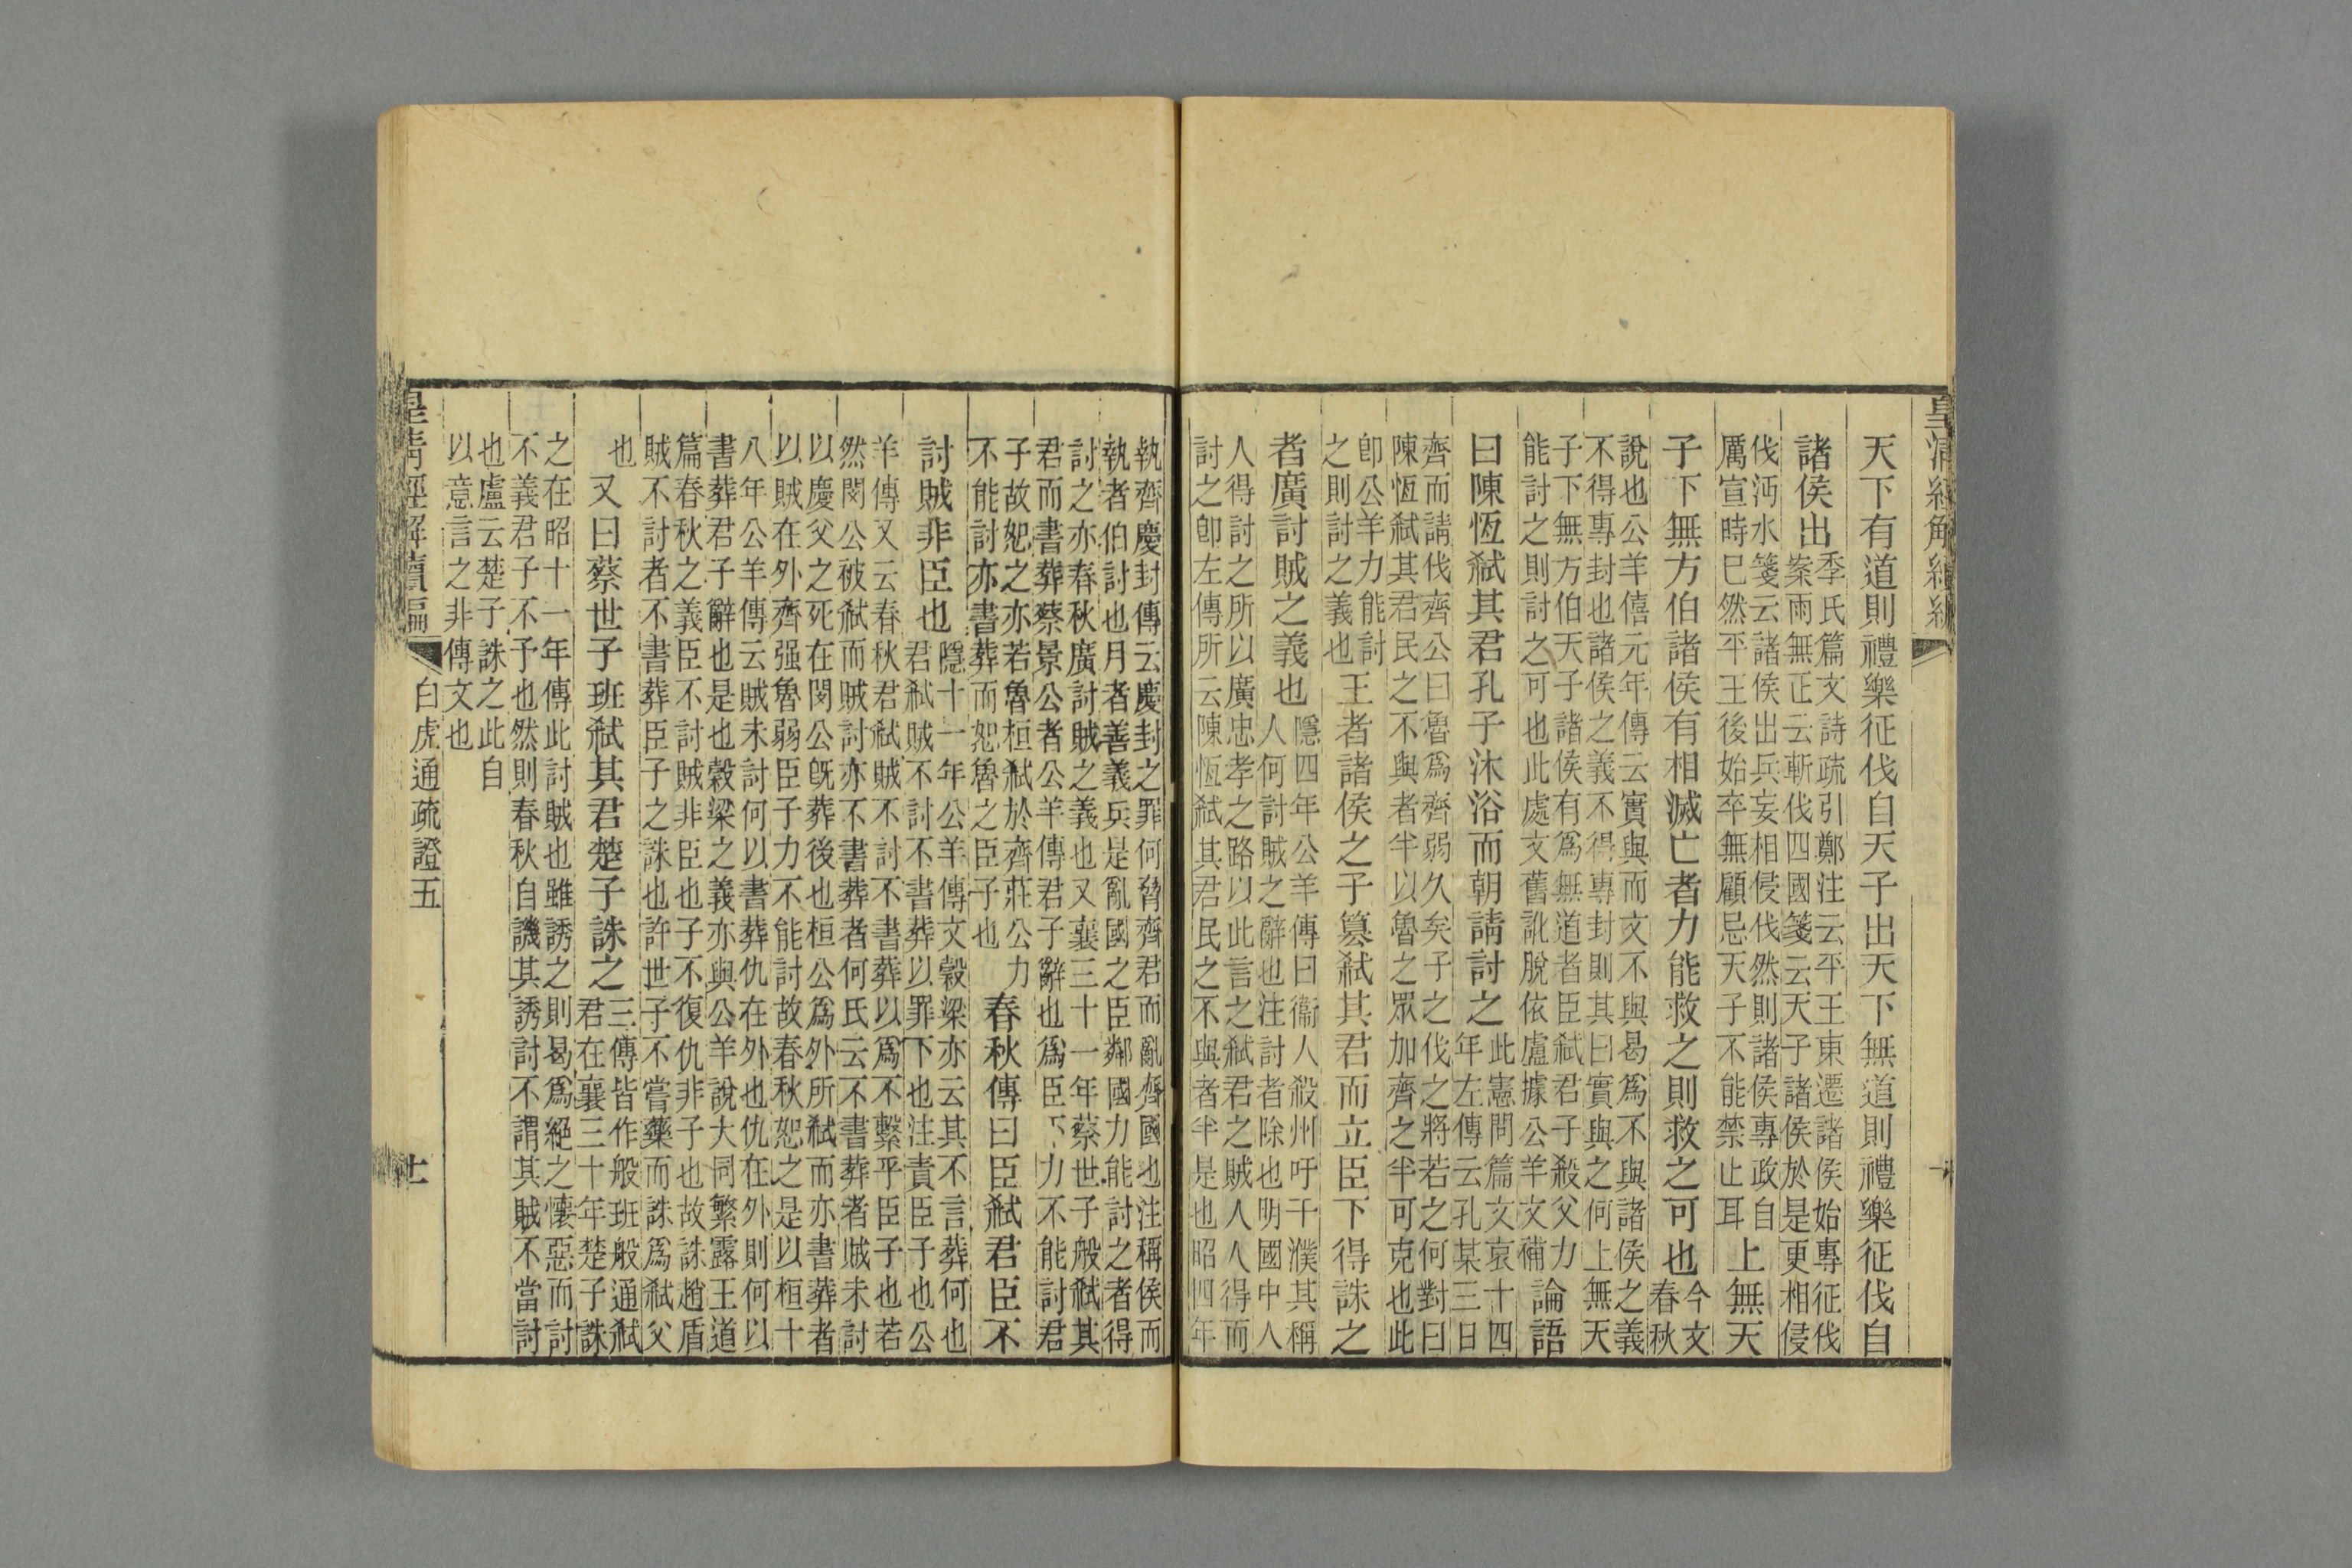 皇清經解續編
天下有道則禮樂征伐自天子出天下無道則禮樂征伐自
諸侯出季氏篇文詩疏引鄭注云平王東遷諸侯始專征伐
案雨無正云斬伐四國箋云天子諸侯於是更相侵
伐沔水箋云諸侯出兵妄相侵伐然則諸侯專政自
厲宣時巳然平王後始卒無顧忌天子不能禁止耳上無天
子下無方伯諸侯有相滅亡者力能救之則救之可也今文
春秋
說也公羊僖元年傳云實與而文不與曷爲不與諸侯之義
不得專封也諸侯之義不得專封則其曰實與之何上無天
子下無方伯天子諸侯有爲無道者臣弒君子殺父力
能討之則討之可也此處文舊訛脫依盧據公羊文補論語
曰陳恆弒其君孔子沐浴而朝請討之此憲問篇文哀十四
年左傳云孔某三日
齊而請伐齊公曰魯爲齊弱久矣子之伐之將若之何對曰
陳恆弒其君民之不與者半以魯之眾加齊之半可克也此
卽公羊力能討
之則討之義也王者諸侯之子篡弒其君而立臣下得誅之
者廣討賊之義也隱四年公羊傳曰衞人殺州吁于濮其稱
人何討賊之辭也注討者除也明國中人
人得討之所以廣忠孝之路以此言之弒君之賊人人得而
討之卽左傳所云陳恆弒其君民之不與者半是也昭四年
執齊慶封傳云慶封之罪何脅齊君而亂齊國也注稱侯而
執者伯討也月者善義兵是亂國之臣鄰國力能討之者得
討之亦春秋廣討賊之義也又襄三十一年蔡世子般弒其
君而書葬蔡景公者公羊傳君子辭也爲臣下力不能討君
子故恕之亦若魯桓弒於齊莊公力
不能討亦書葬而恕魯之臣子也春秋傳曰臣弒君臣不
討賊非臣也隱十一年公羊傳文穀梁亦云其不言葬何也
君弒賊不討不書葬以罪下也注責臣子也公
羊傳又云春秋君弒賊不討不書葬以爲不繫乎臣子也若
然閔公被弒而賊討亦不書葬者何氏云不書葬者賊未討
以慶父之死在閔公旣葬後也桓公爲外所弒而亦書葬者
以賊在外齊强魯弱臣子力不能討故春秋恕之是以桓十
八年公羊傳云賊未討何以書葬仇在外也仇在外則何以
書葬君子辭也是也穀梁之義亦與公羊說大同繁露王道
篇春秋之義臣不討賊非臣也子不復仇非子也故誅趙盾
賊不討者不書葬臣子之誅也許世子不嘗藥而誅爲弒父
也又曰蔡世子班弒其君楚子誅之三傳皆作般班般通弒
君在襄三十年楚子誅
之在昭十一年傳此討賊也雖誘之則曷爲絕之懷惡而討
不義君子不予也然則春秋自譏其誘討不謂其賊不當討
也盧云楚子誅之此自
以意言之非傳文也
皇清經解續編
白虎通疏證五
十一